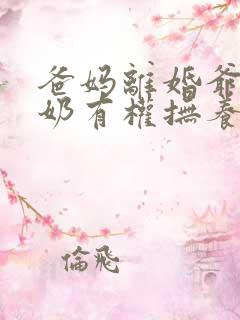 爸妈離婚爺
奶有權撫養
倫飛